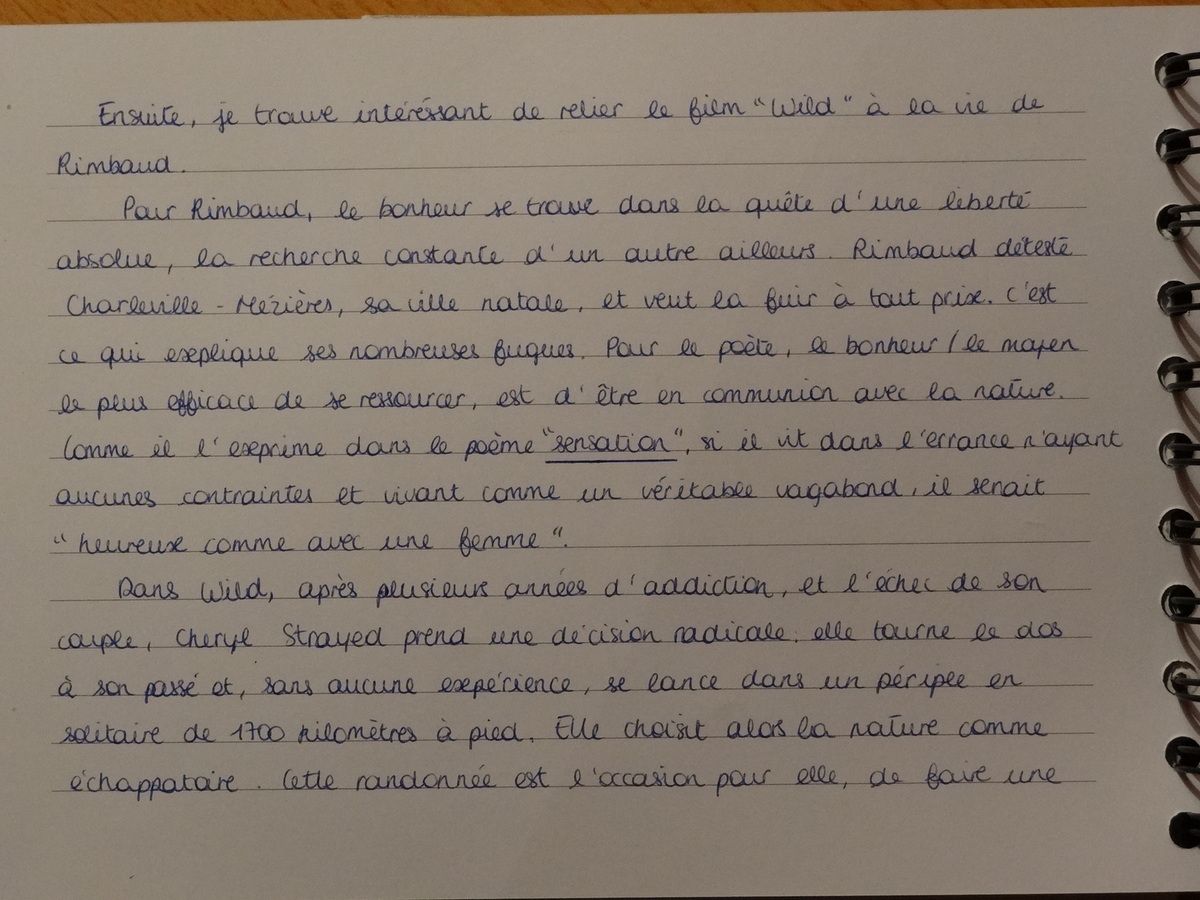 Ensuite, je trouve intéréssant de relier le film "Wild" à la vie de
Rimbaud.
Pour Rimbaud, le bonheur se trouve dans la quête d'une liberté
absolue, la recherche constante d'un autre ailleurs. Rimbaud détesté
Charleville-Mézières, sa ville natale, et veut la fuir à tout prix. C'est
ce qui explique ses nombreuses fugues. Pour le poète, le bonheur / le moyen
le plus efficace de se ressourcer, est d'être en communion avec la nature.
Comme il l'exprime dans le poème "sensation", si il vit dans l'errance n'ayant
aucunes contraintes et vivant comme un véritable vagabond, il serait
"heureux comme avec une femme".
Dans Wild, après plusieurs années d'addiction, et l'échec de son
couple, Cheryl Strayed prend une décision radicale: elle tourne le dos
à son passé et, sans aucune expérience, se lance dans un périple en
solitaire de 1700 kilomètres à pied. Elle choisit alors la nature comme
échappatoire. Cette randonnée est l'occasion pour elle, de faire une